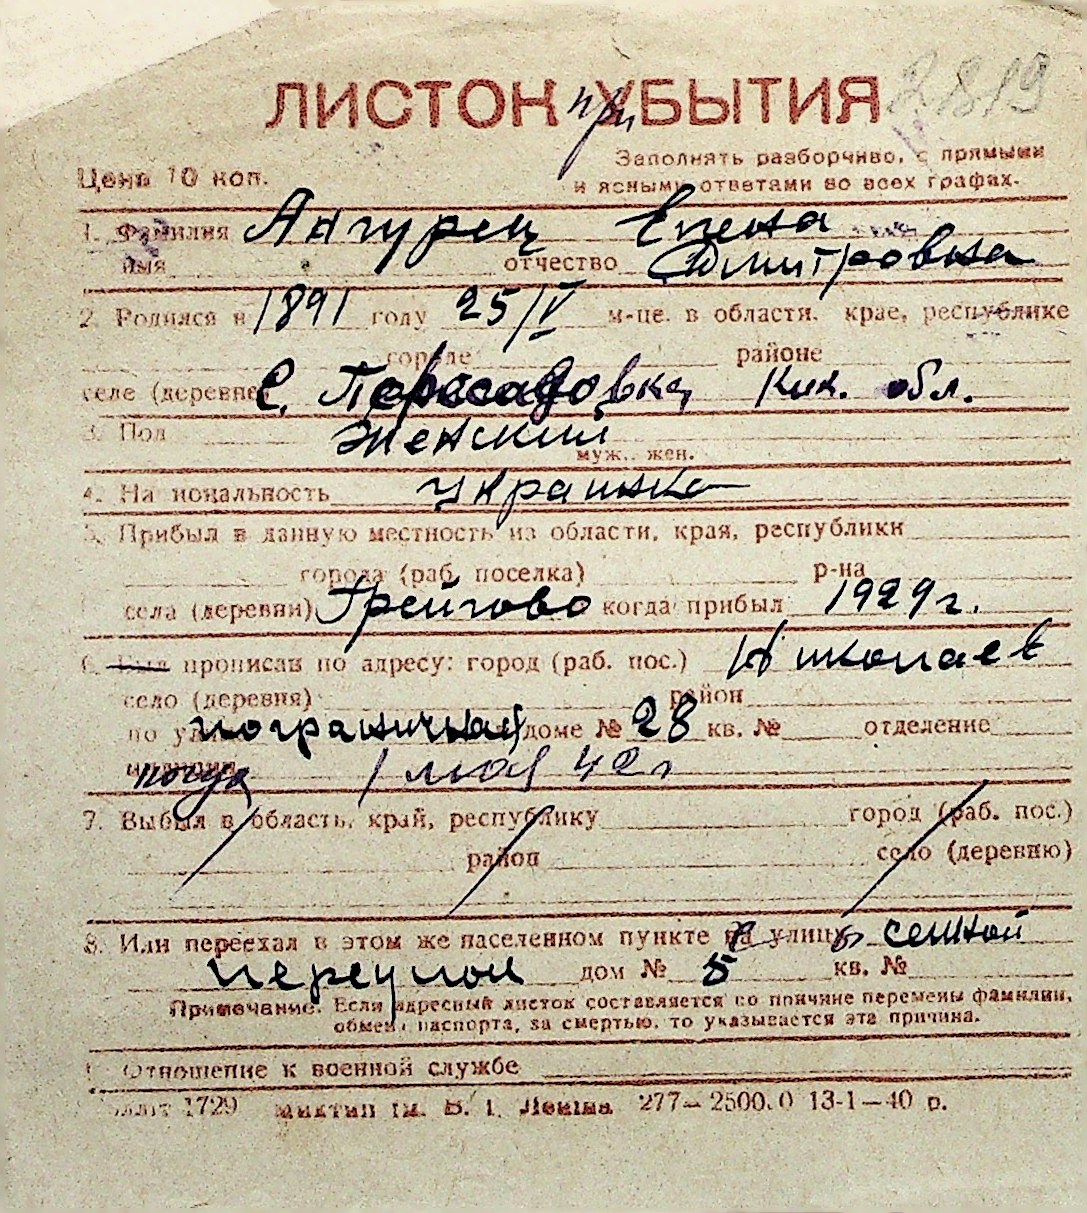 2819
ЛИСТОК при УБЫТИЯ
Цена 10 коп.
Заполнять разборчиво, с прямыми
и ясными ответами во всех графах.
1. Фамилия Ангурец Елена
имя отчество Дмитровна
2. Родился в 1891 году 25/V м-це. в области, крае, республике
городе районе
селе (деревне) С. Пересадовка Ник. обл.
3. Пол Женский
муж., жен.
4. Национальность украинка
5. Прибыл в данную местность из области, края, республики
города (раб. поселка) р-на
села (деревни) Грейгово когда прибыл 1929 г.
6. Был прописан по адресу: город (раб. пос.) Николаев
село (деревня) район
по улице пограничная доме № 28 кв. № отделение
милиции когда 1 мая 42 г
7. Выбыл в область, край, республику город (раб. пос.)
район село (деревню)
8. Или переехал в этом же населенном пункте на улицу сенной
переулок дом № 5 кв. №
Примечание. Если адресный листок составляется по причине перемены фамилии,
обмена паспорта, за смертью, то указывается эта причина.
Отношение к военной службе
1729 им. В. І. Леніна 277—2500.0 13-1—40 р.